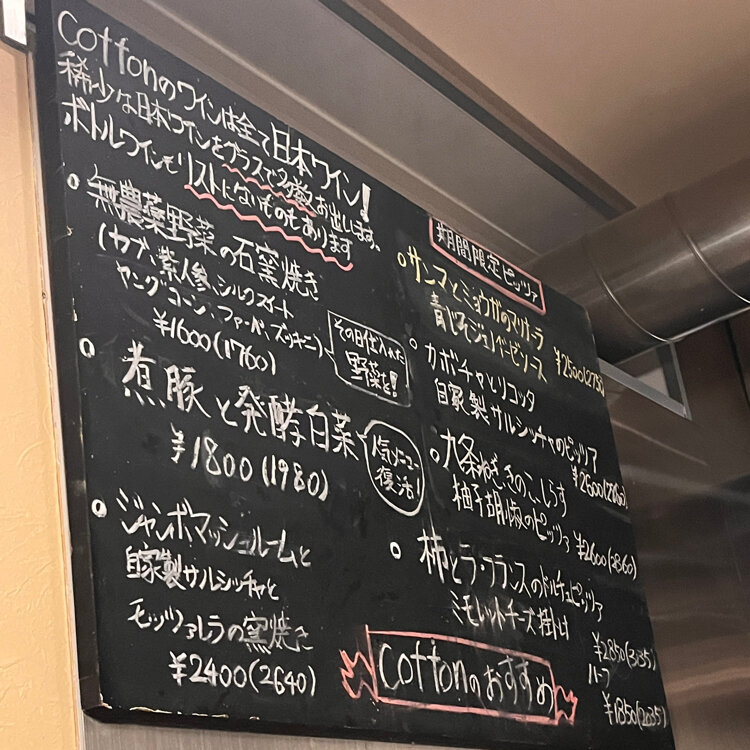 Cottonのワインは全て日本ワイン!
稀少な日本ワインをグラスで多数お出しします、
ボトルワインもリストにないものもあります
無農薬野菜の石窯焼き
(カブ、紫人参、シルクスイート
ヤングコーン、ファーベ、ズッキーニ)
¥1600(1760)
その日仕入れた
野菜を!
煮豚と発酵白菜
¥1800(1980)
人気メニュー
復活
ジャンボマッシュルームと
自家製サルシッチャと
モッツァレラの窯焼き
¥2400(2640)
期間限定ピッツァ
サンマとミョウガのマリナーラ
青じそジェノベーゼソース ¥2500(2750)
カボチャとリコッタ
自家製サルシッチャのピッツァ
¥2600(2860)
九条ねぎきのこしらす
柚子胡椒のピッツァ ¥2600(2860)
柿とラ・フランスのドルチェピッツァ
ミモレットチーズ掛け
¥2850(3135)
ハーフ
¥1850(2035)
Cottonのおすすめ